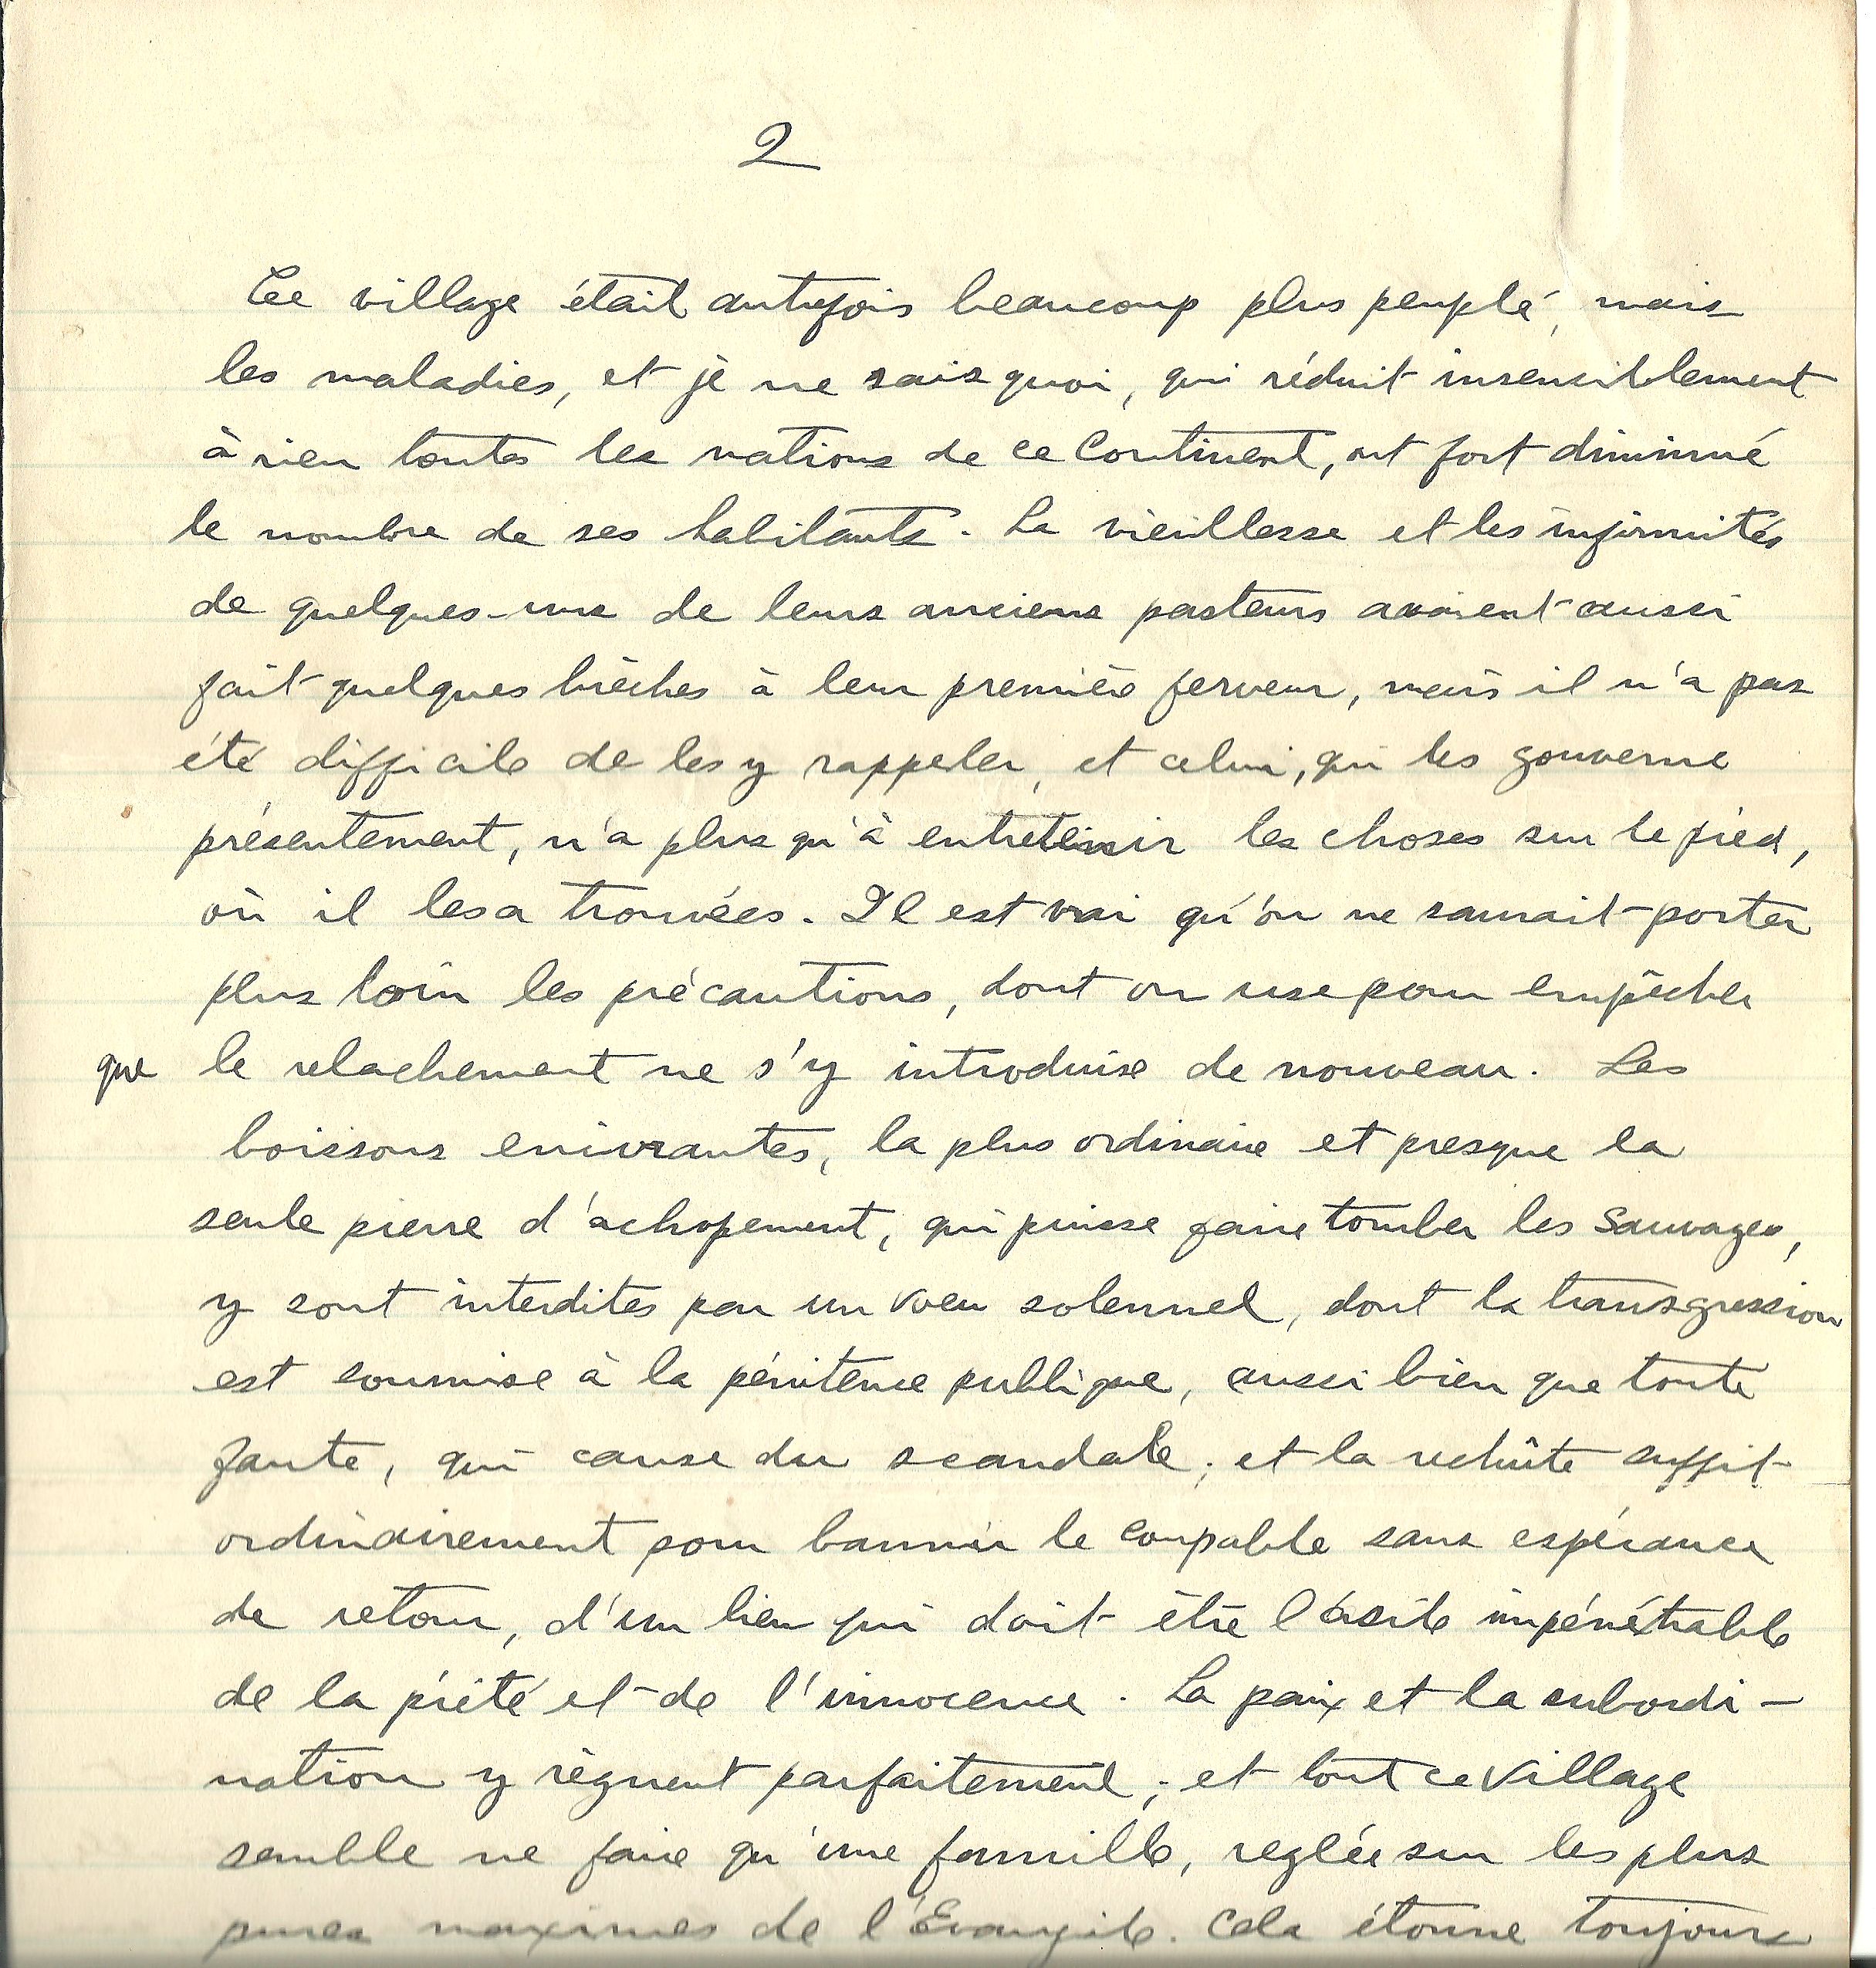 2
Ce village était autrefois beaucoup plus peuplé, mais
les maladies, et je ne sais quoi, qui réduit insensiblement
à rien toutes les nations de ce Continent, ont fort diminué
le nombre de ses habitants. La vieillesse et les infirmités
de quelques-uns de leurs anciens pasteurs avaient aussi
fait quelques brèches à leur première ferveur, mais il n'a pas
été difficile de les y rappeler, et celui, qui les gouverne
présentement, n'a plus qu'à entretenir les choses sur le pied,
où il les a trouvées. Il est vrai qu'on ne saurait porter
plus loin les précautions, dont on use pour empêcher
que le relachement ne s'y introduise de nouveau. Les
boissons enivrantes, la plus ordinaire et presque la
seule pierre d'achopement, qui puisse faire tomber les Sauvages,
y sont interdites par un voeu solennel, dont la transgression
est soumise à la pénitence publique, aussi bien que toute
faute, qui cause du scandale; et la rechûte suffit
ordinairement pour bannir le coupable sans espérance
de retour, d'un lieu qui doit être l'asile impénétrable
de la piété et de l'innocence. La paix et la subordi-
nation y règnent parfaitement; et tout ce village
semble ne faire qu'une famille, reglée sur les plus
pures maximes de l'Evangile. Cela étonne toujours